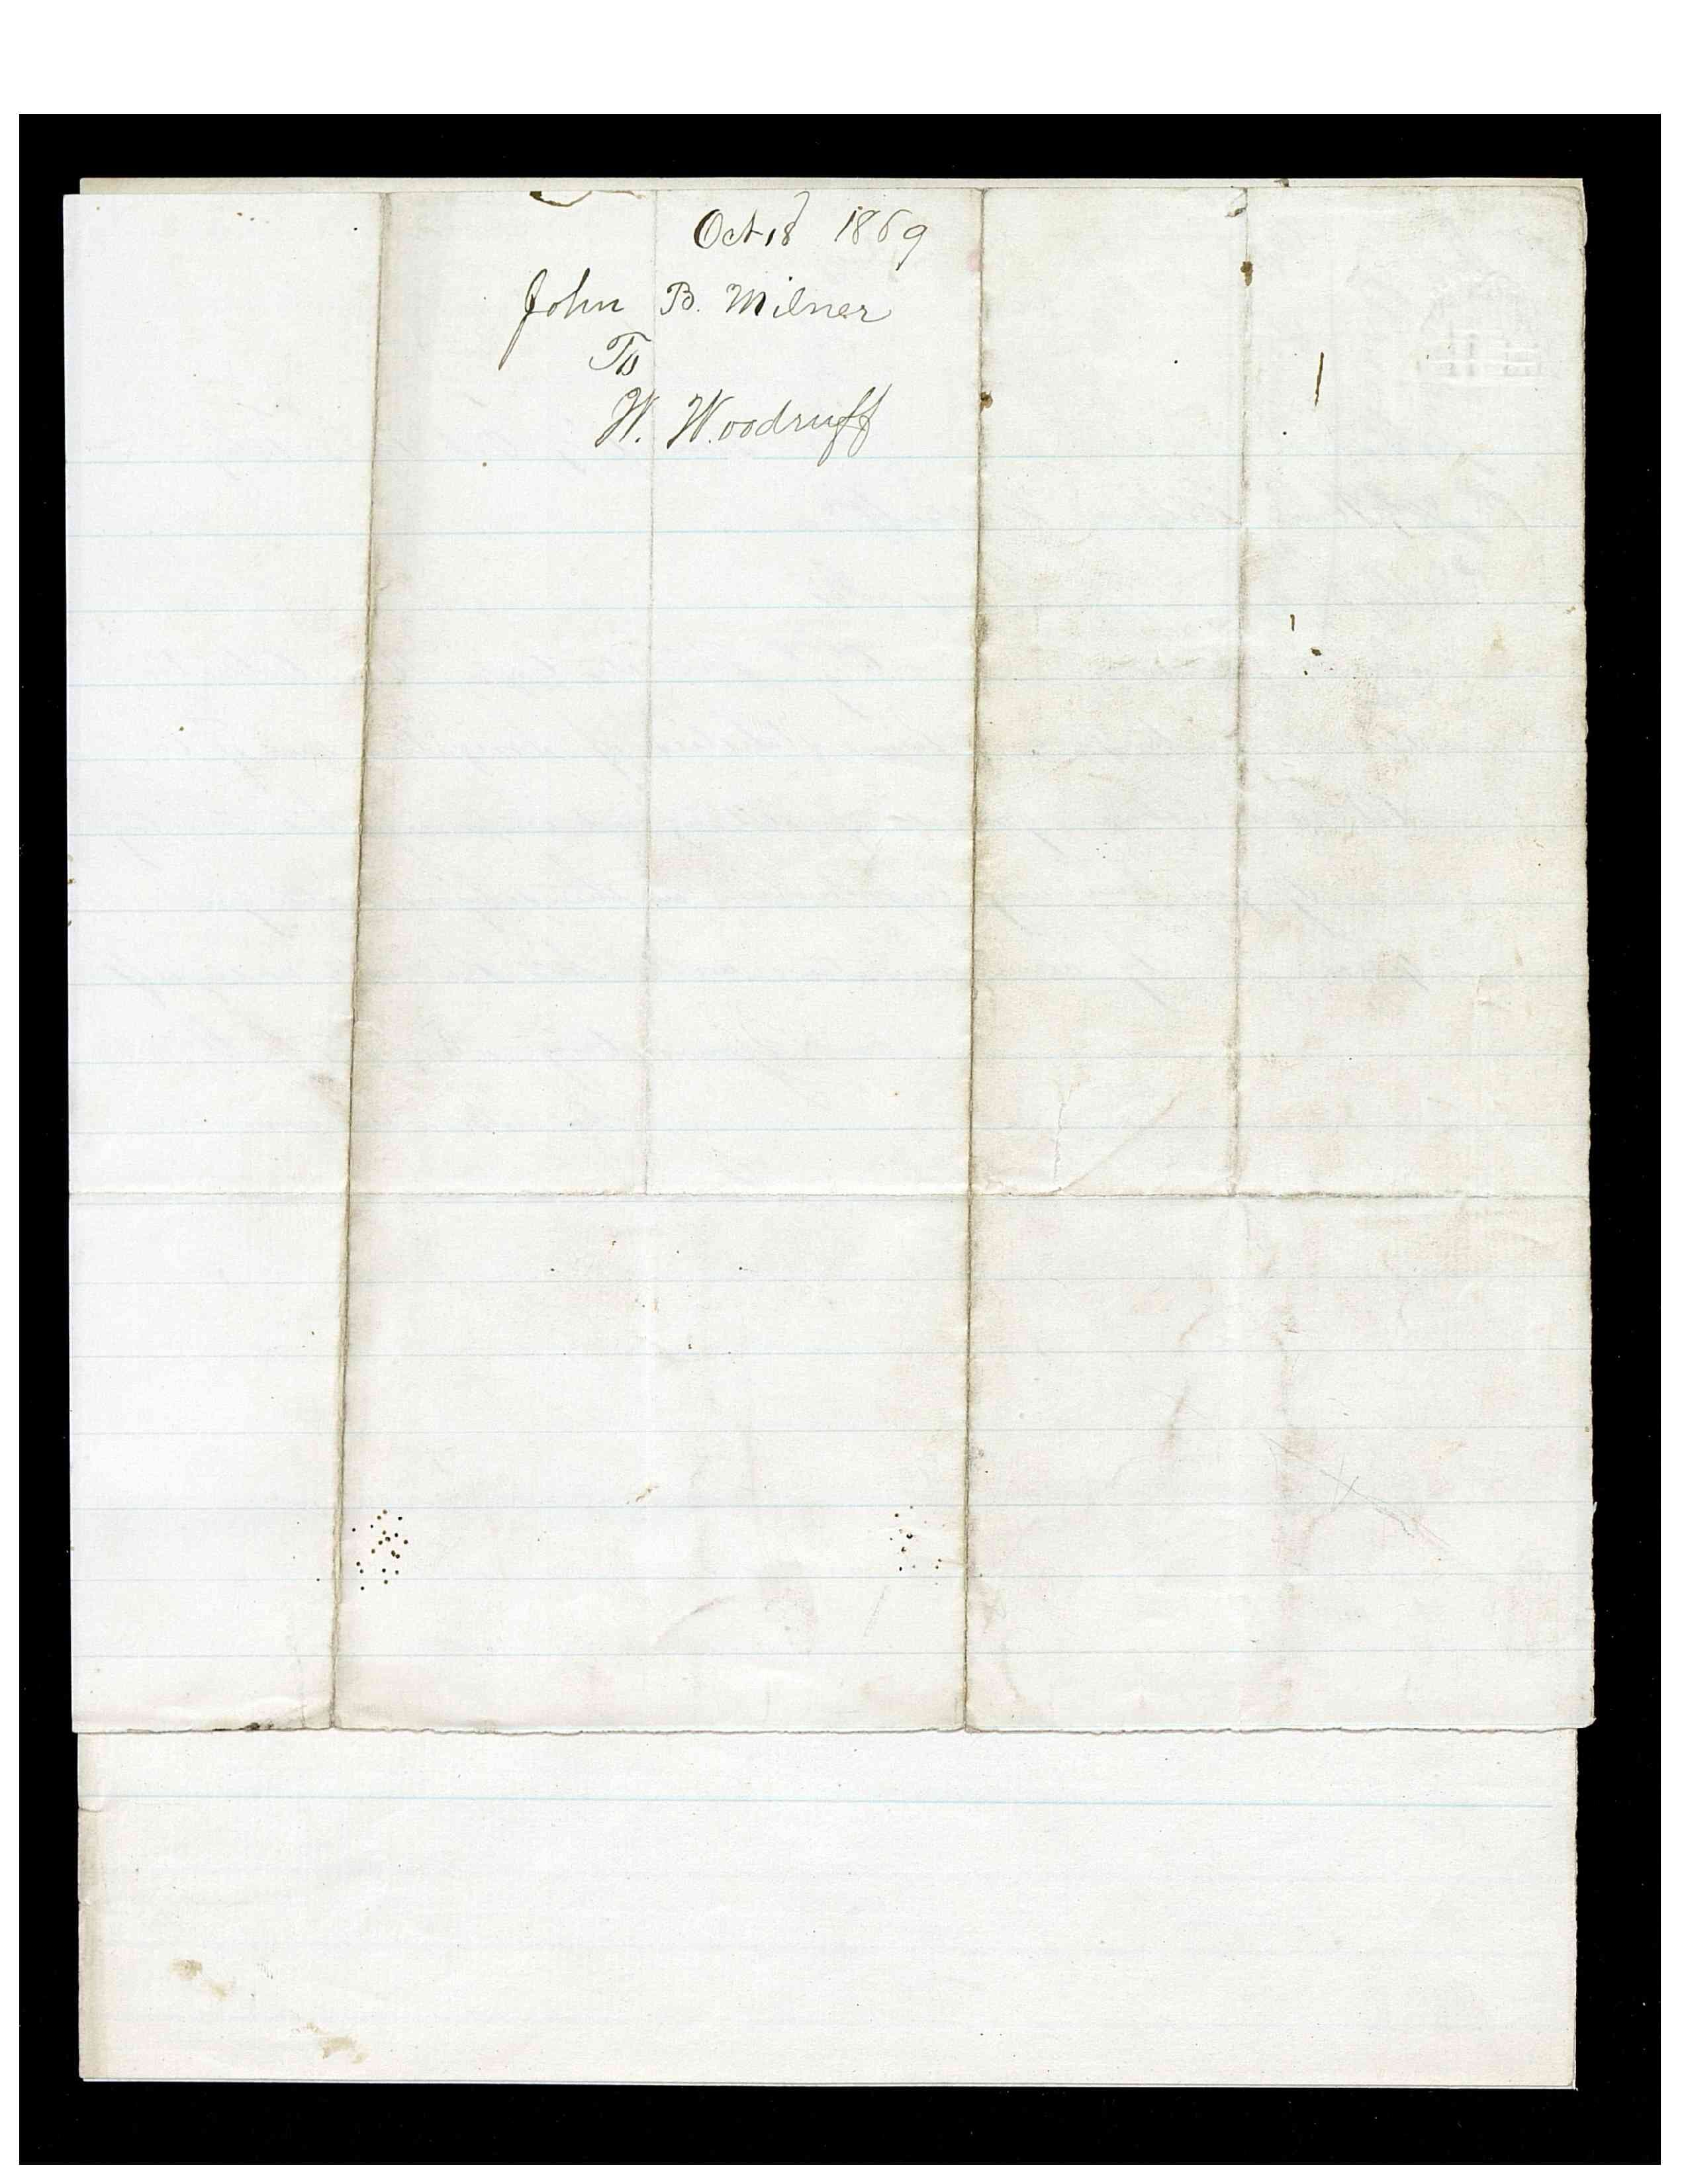 Oct 18 1869
John B. Milner
To
W. Woodruff